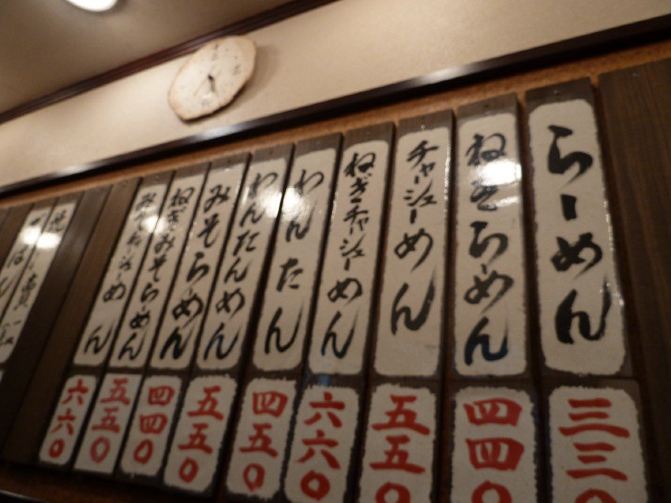 らーめん
三三〇
ねぎらめん
四四〇
チャーシューめん
五五〇
ねぎチャーシューめん
六六〇
わんたん
四五〇
わんたんめん
五五〇
みそらめん
四四〇
ねぎみそらめん
五五〇
めん
六六〇